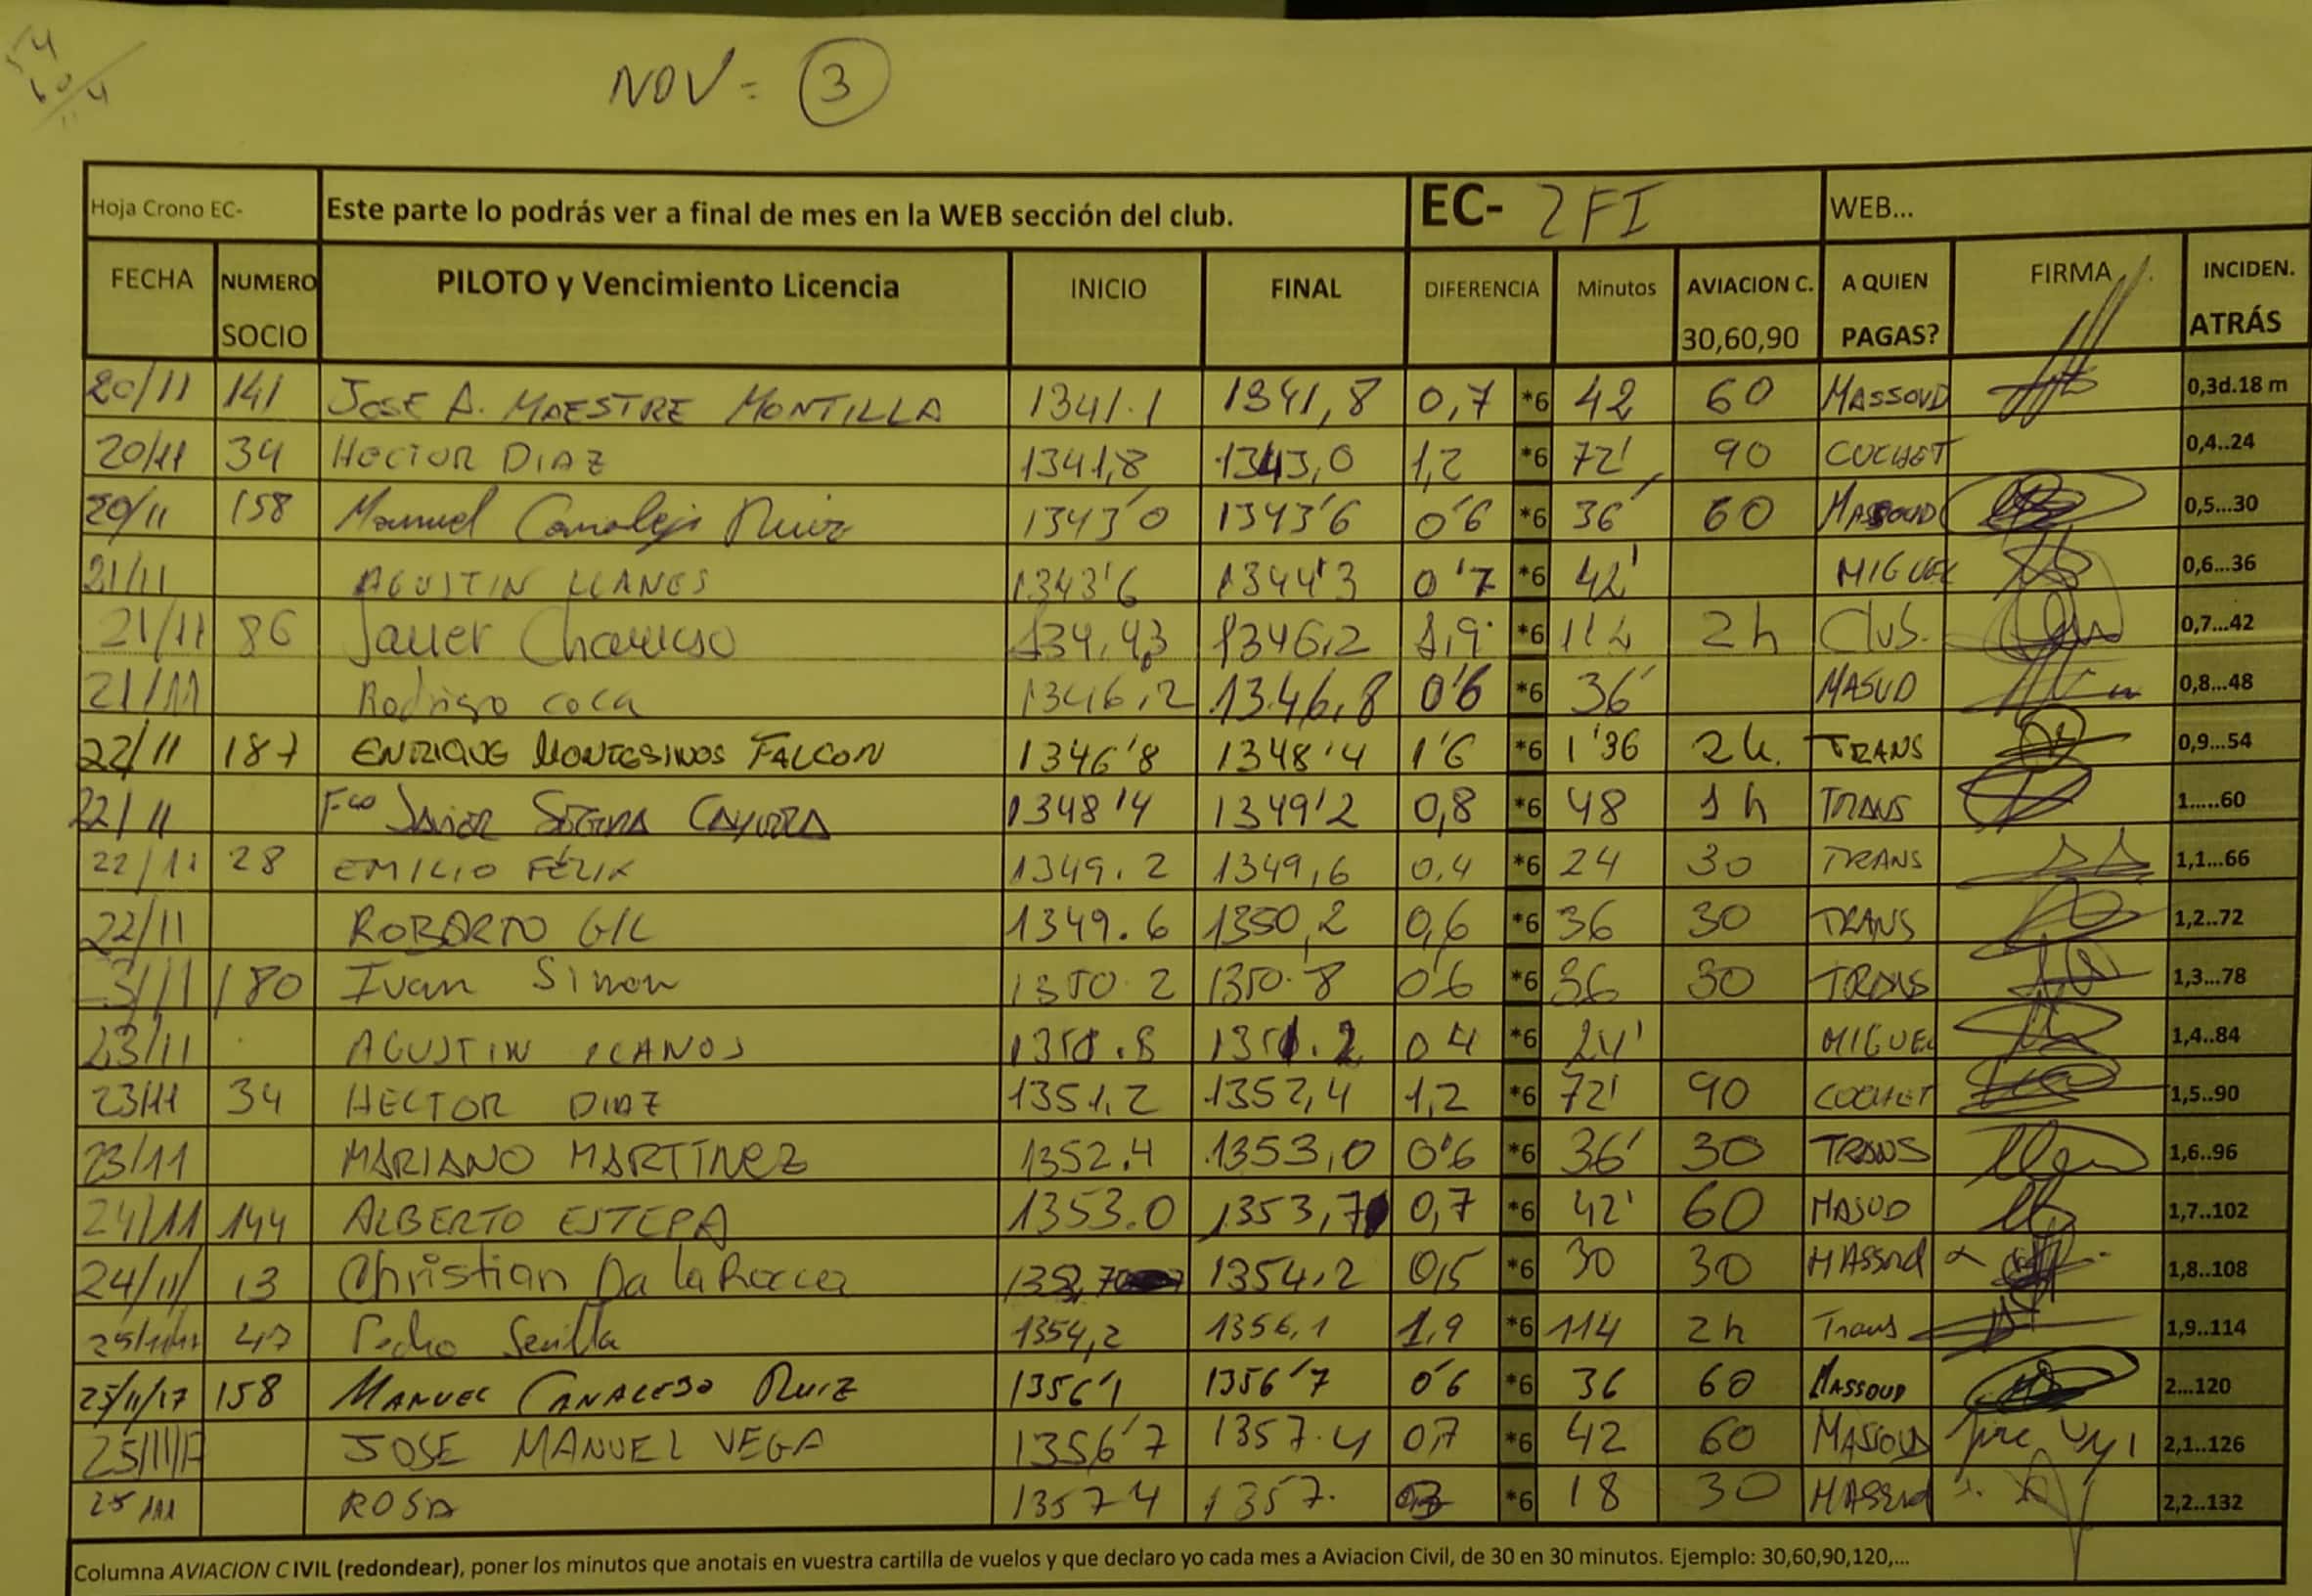 54
60
4
NOV = 3
Hoja Crono EC- Este parte lo podrás ver a final de mes en la WEB sección del club. EC- ZFI WEB...
FECHA NUMERO SOCIO PILOTO y Vencimiento Licencia INICIO FINAL DIFERENCIA Minutos AVIACION C. 30,60,90 A QUIEN PAGAS? FIRMA INCIDEN. ATRÁS
20/11 141 JOSE A. MAESTRE MONTILLA 1341.1 1341,8 0,7 *6 42 60 MASSOUD 0,3d.18 m
20/11 34 HECTOR DIAZ 1341,8 1343,0 1,2 *6 72' 90 COCHET 0,4..24
20/11 158 Manuel Canalejo Ruiz 1343'0 1343'6 0'6 *6 36' 60 MASSOUD 0,5...30
21/11 AGUSTIN LLANOS 1343'6 1344'3 0'7 *6 42' MIGUEL 0,6...36
21/11 86 Javier 134,4,3 1346,2 1,9 *6 114 2h Club. 0,7...42
21/11 Rodrigo coca 1346,2 1346,8 0'6 *6 36' MASUD 0,8...48
22/11 187 ENRIQUE MONTESINOS FALCON 1346'8 1348'4 1'6 *6 1'36 2h. TRANS 0,9...54
22/11 Fco JAVIER 1348'4 1349'2 0,8 *6 48 1h TRANS 1.....60
22/11 28 EMILIO FÉLIX 1349.2 1349,6 0,4 *6 24 30 TRANS 1,1...66
22/11 ROBERTO GIL 1349.6 1350,2 0,6 *6 36 30 TRANS 1,2..72
23/11 180 Ivan Simon 1350.2 1350.8 0'6 *6 36 30 TRANS 1,3...78
23/11 AGUSTIN LLANOS 1350.8 1351.2 0 4 *6 24' MIGUEL 1,4..84
23/11 34 HECTOR DIAZ 1351,2 1352,4 1,2 *6 72' 90 COCHET 1,5..90
23/11 MARIANO MARTÍNEZ 1352.4 1353,0 0'6 *6 36' 30 TRANS 1,6..96
24/11 144 ALBERTO ESTEPA 1353.0 1353,7 0,7 *6 42' 60 MASUD 1,7..102
24/11/ 13 Christian Da la Rocca 1353,7 1354,2 0,5 *6 30 30 MAssod 1,8..108
25/11/17 47 Pedro Sevilla 1354,2 1356,1 1,9 *6 114 2h Trans 1,9..114
25/11/17 158 MANUEL CANALEJO RUIZ 1356'1 1356'7 0'6 *6 36 60 MASSOUD 2...120
25/11/17 JOSE MANUEL VEGA 1356'7 1357.4 0,7 *6 42 60 MASSOUD 2,1..126
25/11 ROSA 1357 4 1357. 0,3 *6 18 30 2,2..132
Columna AVIACION CIVIL (redondear), poner los minutos que anotais en vuestra cartilla de vuelos y que declaro yo cada mes a Aviacion Civil, de 30 en 30 minutos. Ejemplo: 30,60,90,120,...